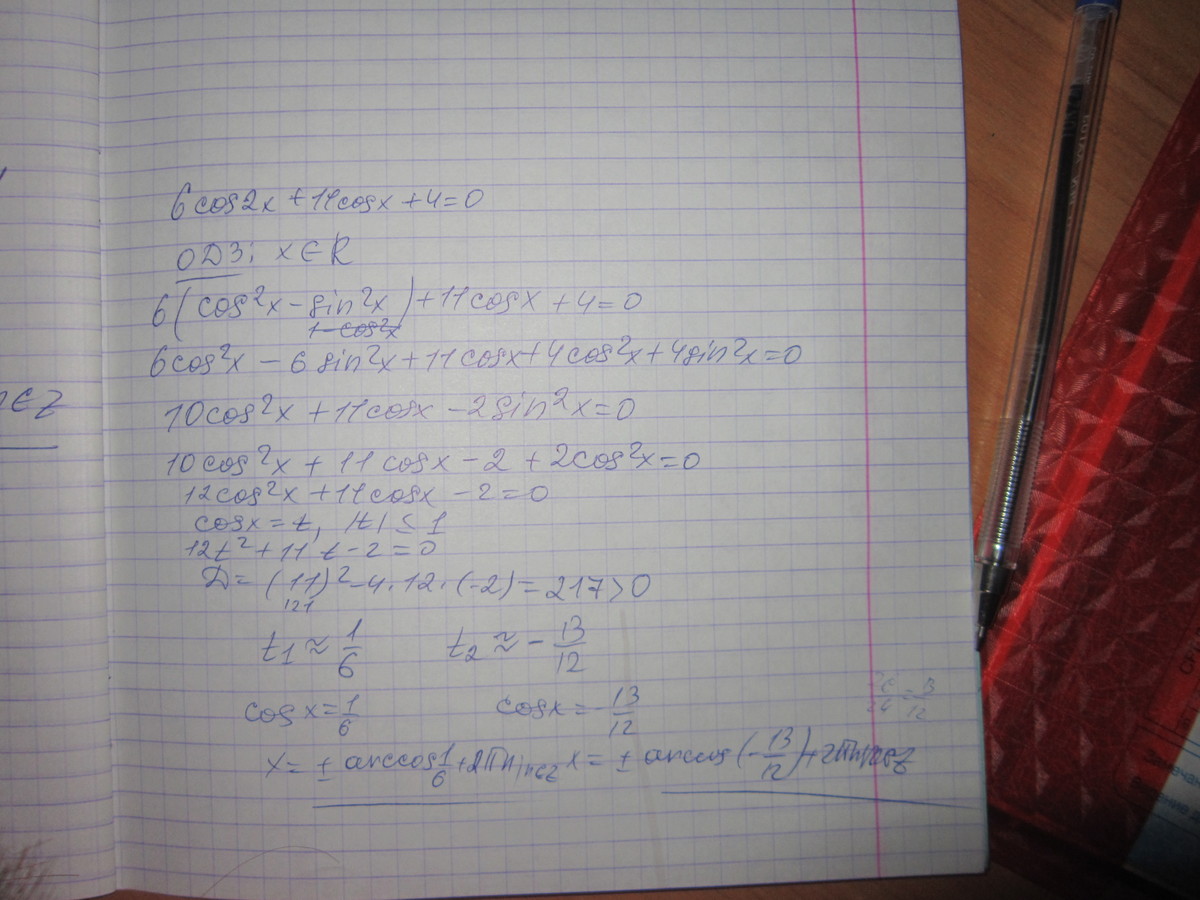 6cos2x + 11cosx + 4 = 0
ОДЗ: x ∈ R
6(cos²x - sin²x) + 11cosx + 4 = 0
1-cos²x
n∈Z
6cos²x - 6 sin²x + 11cosx + 4cos²x + 4sin²x = 0
10cos²x + 11cosx - 2sin²x = 0
10cos²x + 11cosx - 2 + 2cos²x = 0
12cos²x + 11cosx - 2 = 0
cosx = t, |t| ≤ 1
12t² + 11t - 2 = 0
D = (11)² - 4·12·(-2) = 217 > 0
121
t₁ ≈ 1/6 t₂ ≈ - 13/12
cosx = 1/6 cosx = - 13/12
x = ± arccos 1/6 + 2πn, n∈Z x = ± arccos(- 13/12) + 2πn, n∈Z